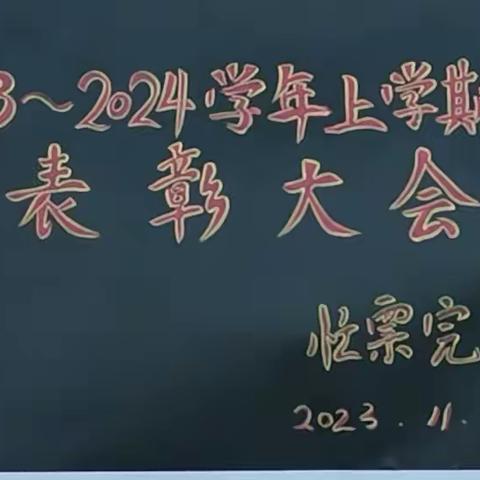 3～2024学年上学期
表彰大会
忙票完
2023.11.